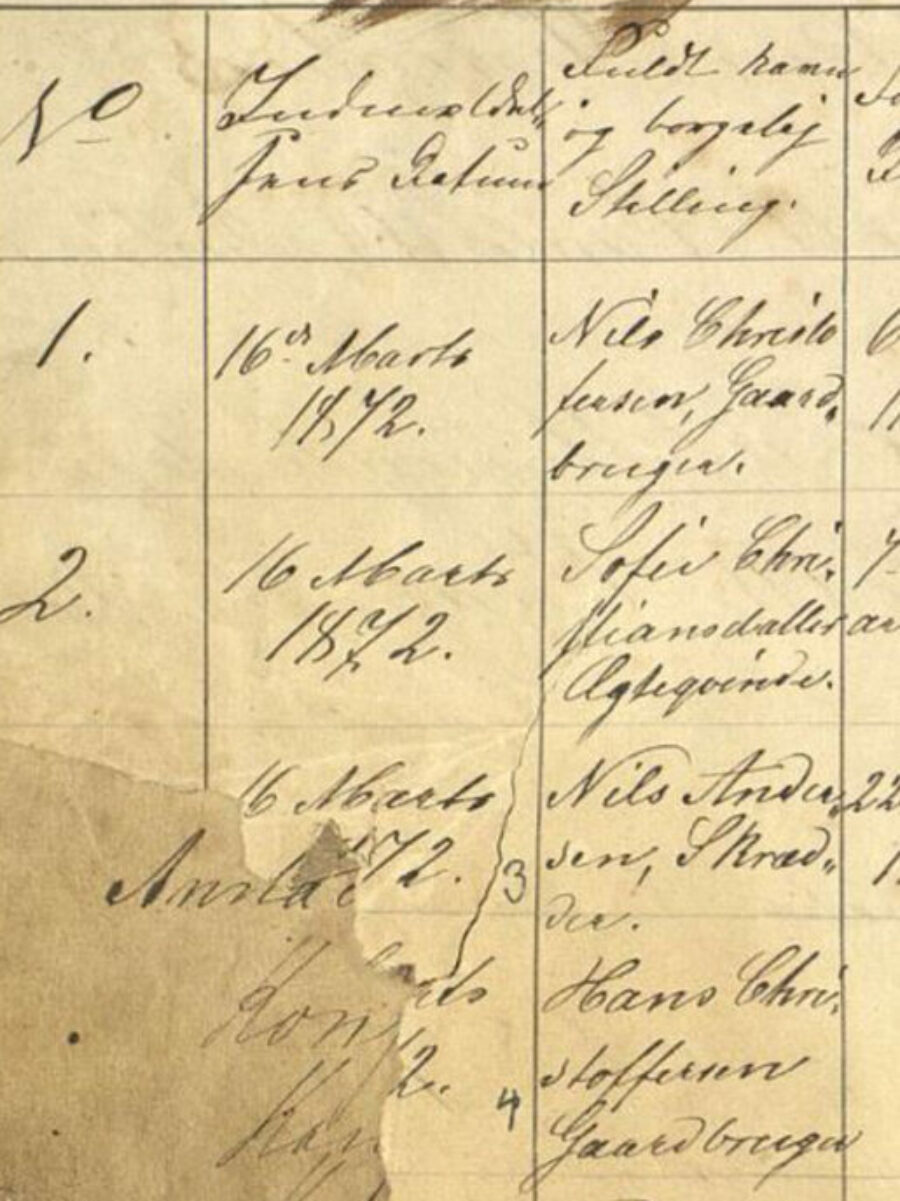 No
Indmeldel„
sens Datum
Fuldt Navn
og borgelig
Stilling.
1.
16de Marts
1872.
Nils Christo
fersen, Gaard„
bruger.
2.
16 Marts
1872.
Sofie Chri„
stiansdatter
Ægteqvinde.
16 Marts
72.
3
Nils Ander„
sen, Skræd„
der.
22
ts
2.
4
Hans Chri„
stoffersen
Gaardbruger